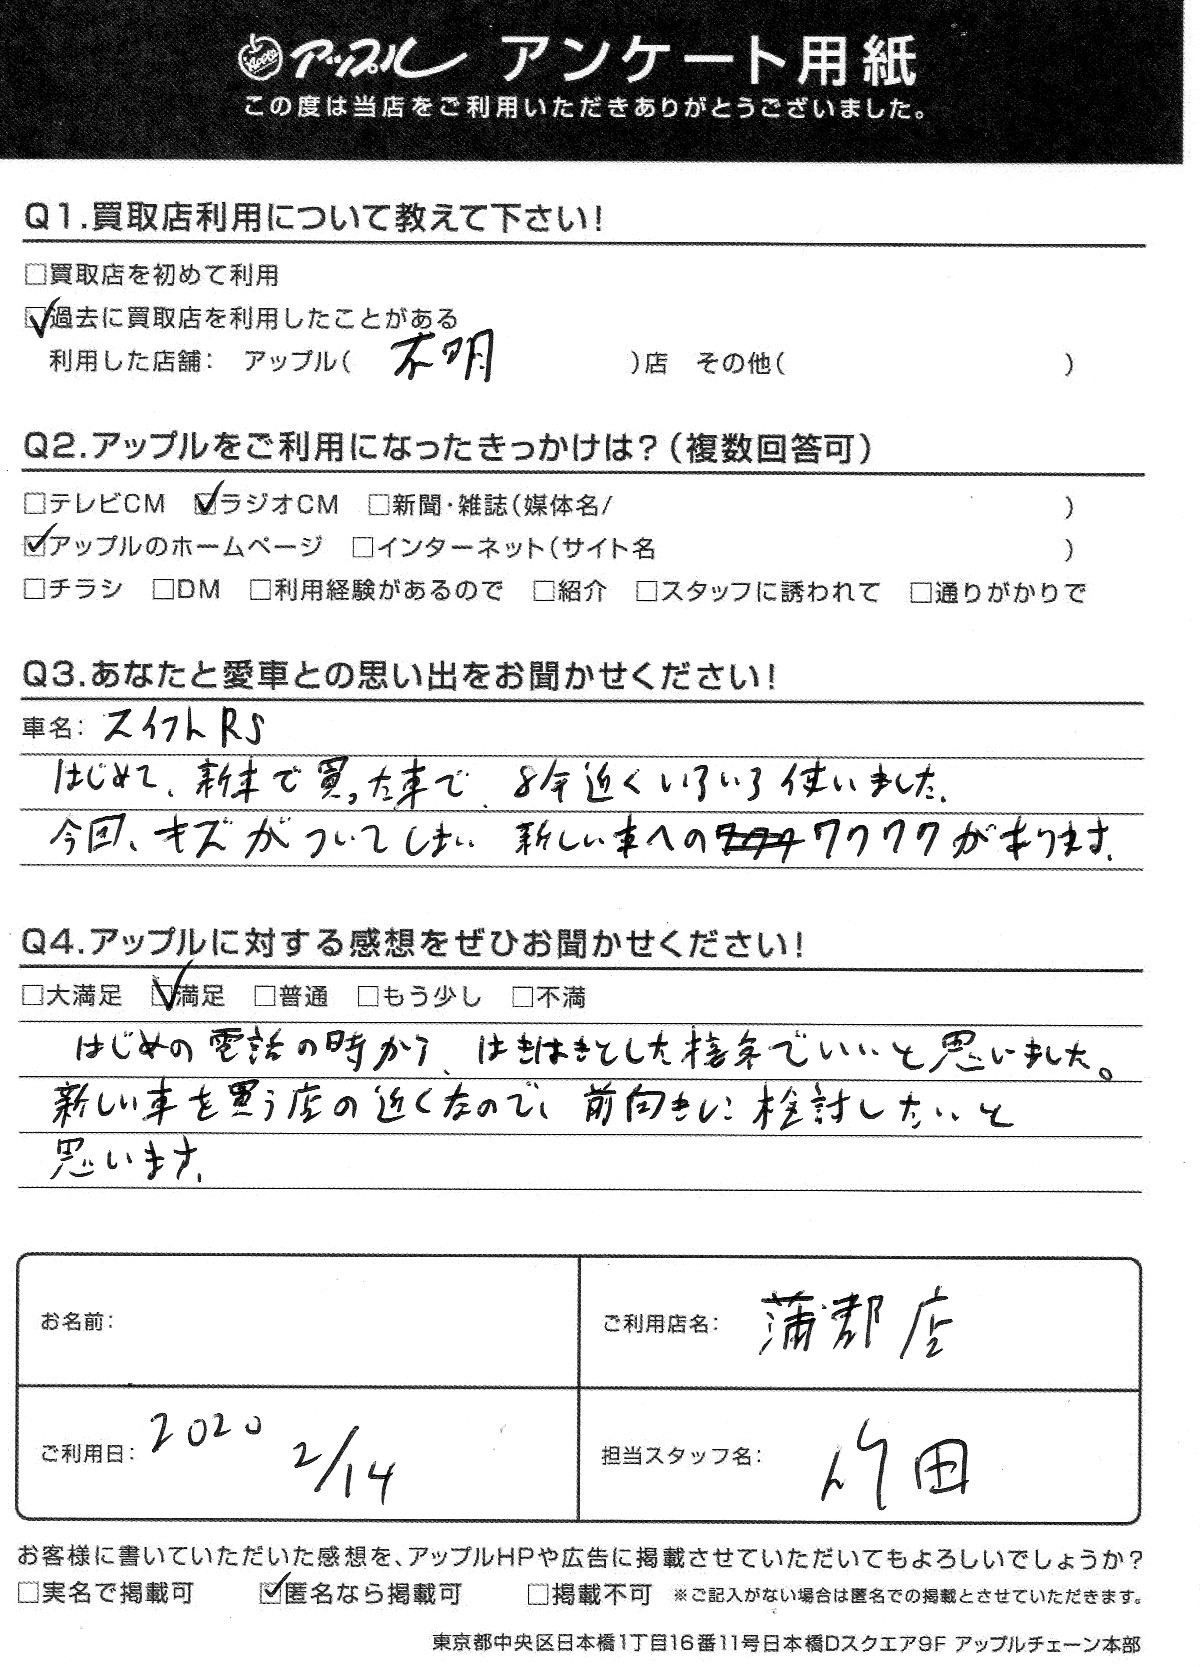 Apple アップル アンケート用紙
この度は当店をご利用いただきありがとうございました。
Q1.買取店利用について教えて下さい!
□買取店を初めて利用
☑過去に買取店を利用したことがある
利用した店舗: アップル( 不明 )店 その他( )
Q2.アップルをご利用になったきっかけは?(複数回答可)
□テレビCM ☑ラジオCM □新聞・雑誌(媒体名/ )
☑アップルのホームページ □インターネット(サイト名 )
□チラシ □DM □利用経験があるので □紹介 □スタッフに誘われて □通りがかりで
Q3.あなたと愛車との思い出をお聞かせください!
車名: スイフトRS
はじめて、新車で買った車で、8年近くいろいろ使いました。
今回、キズがついてしまい 新しい車へのワクワクがあります。
Q4.アップルに対する感想をぜひお聞かせください!
□大満足 ☑満足 □普通 □もう少し □不満
はじめの電話の時から、はきはきとした接客でいいと思いました。
新しい車を買う店の近くなので、前向きに検討したいと
思います。
お名前:
ご利用店名: 蒲郡店
ご利用日: 2020 2/14
担当スタッフ名: 竹田
お客様に書いていただいた感想を、アップルHPや広告に掲載させていただいてもよろしいでしょうか?
□実名で掲載可 ☑匿名なら掲載可 □掲載不可 ※ご記入がない場合は匿名での掲載とさせていただきます。
東京都中央区日本橋1丁目16番11号日本橋Dスクエア9F アップルチェーン本部